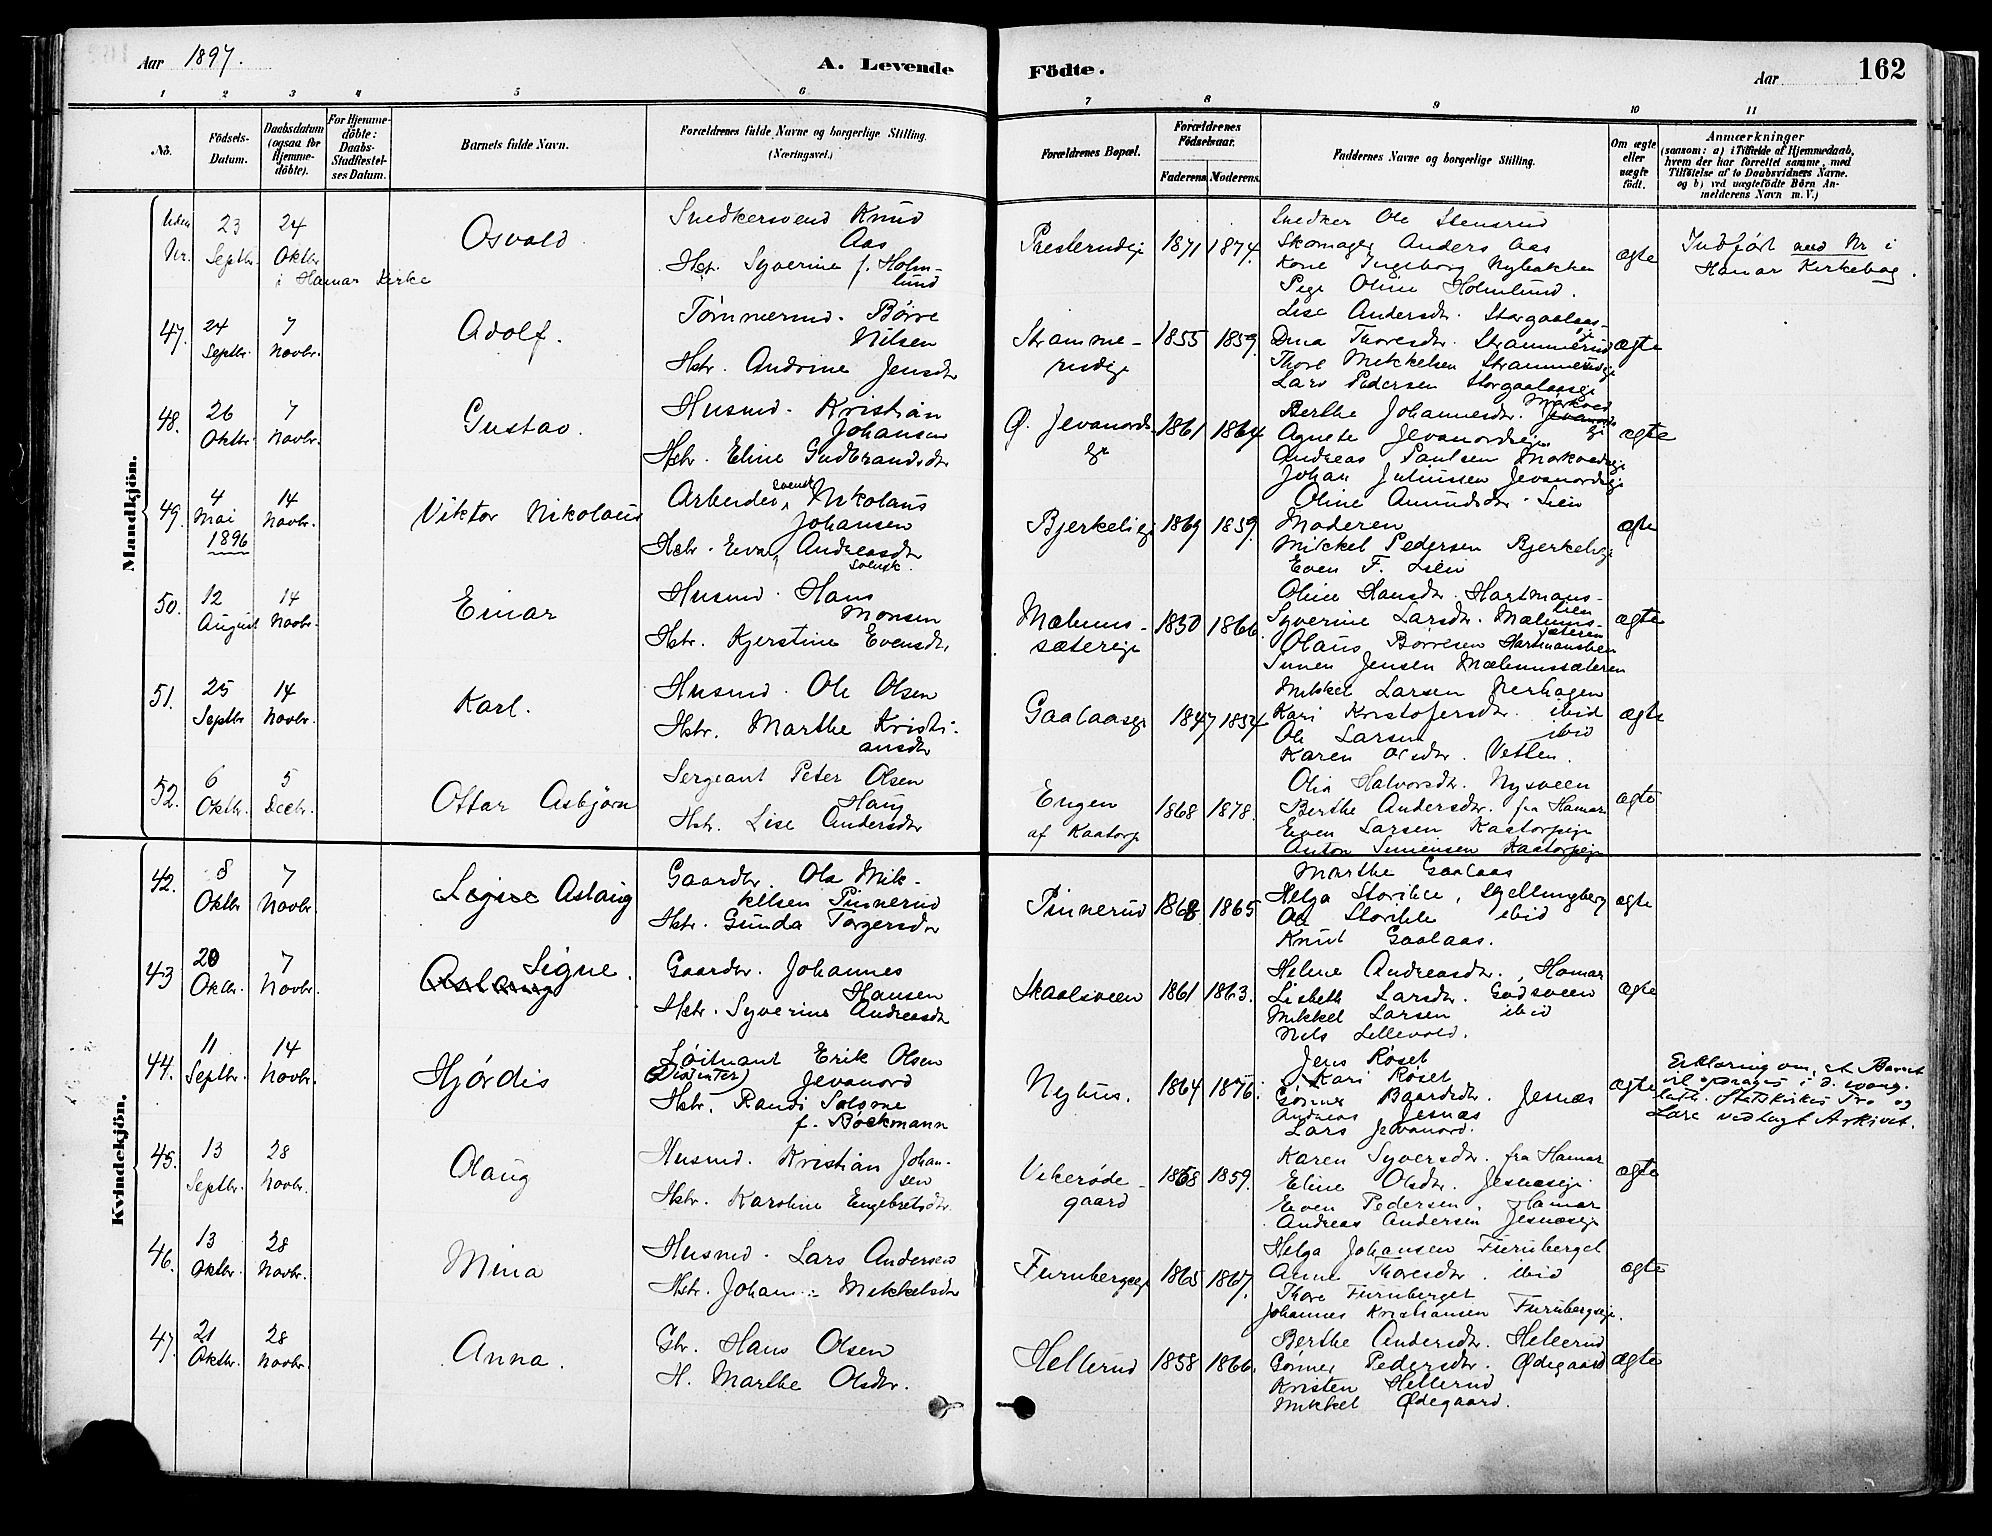 Aar 1897.
A. Levende
Födte.
Aar
162
1 2 3 4 5 6 7 8 9 10 11
No.
Födsels-Datum.
Daabsdatum (ogsaa for Hjemme-döbte).
For Hjemme-döbte: Daabs-Stadfæstel-ses Datum.
Barnets fulde Navn.
Forældrenes fulde Navne og borgerlige Stilling.
(Næringsvei.)
Forældrenes Bopæl.
Forældrenes Födselsaar.
Faderens. Moderens.
Faddernes Navne og borgerlige Stilling.
Om ægte eller uægte födt.
Anmærkninger
(saasom: a) i Tilfælde af Hjemmedaab,
hvem der har forrettet samme, med
Tilföielse af to Daabsvidners Navne.
og b) ved uægtefödte Börn An-
melderens Navn m. V.)
Mandkjön.
Uden Nr.
23 Septbr.
24 Oktbr.
i Hamar Kirke
Osvald
Snedkersvend Knud
Aas
Hst. Syverine f. Holm-
lund
1871 1874.
Snedker Ole Stensrud
Skomager Anders Aas
Kone Ingeborg Nybakken
Pige Oline Holmlund.
ægte
Indført med Nr i
Hamar Kirkebog.
47.
24 Septbr.
7 Novbr.
Adolf.
Tømmermd. Børre
Nilsen
Hstr. Andrine Jensdtr
Stramme-
rudeje
1855 1859.
Lise Andersdtr. Storgaalaas-
Dina Thoresdtr. Strammerud
Thore Mikkelsen Strammerudeje
Lars Pedersen Storgaalaaseje
ægte
48.
26 Oktbr.
7 Novbr.
Gustav.
Husmd. Kristian
Johansen
Hstr. Eline Gudbrandsdtr
Ø. Jevanords-
eje
1861 1864
Berthe Johannesdtr.
Agnete Jevanordseje
Andreas Paulsen
Johan Juliussen Jevanordseje
ægte
49.
4 Mai 1896
14 Novbr.
Viktor Nikolaus
Arbeider, svensk Nikolaus
Johansen
Hstr. Eva Andreasdtr
svensk.
Bjerkelieje
1869 1859.
Oline Amundsdtr. Lien
Moderen
Mikkel Pedersen Bjerkelieje
Even F. Lien
ægte
50.
12 August
14 Novbr.
Einar
Husmd. Hans
Monsen
Hstr. Kjerstine Evensdtr.
Mælums-
sætereje
1850 1866.
Oline Hansdtr. Hartmans-
lien
Syverine Larsdtr. Mælums-
sæteren
Olaus Børresen Hartmanslien
Simen Jensen Mælumssæteren
ægte
51.
25 Septbr
14 Novbr.
Karl.
Husmd. Ole Olsen
Hstr. Marthe Kristi-
ansdtr
Gaalaaseje
1847 1854
Mikkel Larsen Nerhagen
Kari Kristofersdtr. ibid
Ole Larsen ibid
Karen Olsdtr. Vetlen.
ægte
52.
6 Oktbr.
5 Decbr.
Ottar Asbjørn
Sergeant Peter Olsen
Haug
Hstr. Lise Andersdtr
Engen
af Kaatorp
1868 1878.
Olia Halvorsdtr. Nysveen
Berthe Andersdtr. fra Hamar
Even Larsen Kaatorpeje
Anton Simensen Kaatorpeje
ægte
Kvindekjön.
42.
8 Oktbr
7 Novbr.
Signe Aslaug
Gaardbr. Ola Mik-
kelsen Pinnerud
Hstr. Gunda Torgersdtr
Pinnerud
1868 1865
Marthe Gaalaas
Helga Storihle, Skjellungberg
Ole Storihle ibid
Knut Gaalaas.
ægte
43
20 Oktbr.
7 Novbr.
Aslaug Signe.
Gaardbr. Johannes
Hansen
Hstr. Syverine Andreasdtr
Skaalsveen
1861 1863.
Helene Andreasdtr., Hamar
Lisbeth Larsdtr. Godsveen
Mikkel Larsen ibid
Nils Lillevold.
ægte
44.
11 Septbr.
14 Novbr.
Hjørdis
Løitnant Erik Olsen
(Dissenter) Jevanord
Hstr. Randi Salome
f. Bøckmann
Nyhus.
1864 1876.
Jens Røset
Kari Røset
Gønner Baardsdtr. Jesnæs
Andreas Jesnæs
Lars Jevanord.
ægte
Erklæring om, at Barnet
vil opdrages i d. evang.
luth. Statskirkes Tro og
Lære vedlagt Arkivet.
45.
13 Septbr.
28 Novbr.
Olaug
Husmd. Kristian Johan-
sen
Hstr. Karoline Engebretsdtr.
Vikerøde-
gaard
1868 1859.
Karen Syversdtr. fra Hamar
Eline Olsdtr. Jesnæseje.
Even Pedersen, Hamar
Andreas Andersen Jesnæseje
ægte
46.
13 Oktbr.
28 Novbr.
Mina
Husmd. Lars Andersen
Hstr. Johanne Mikkelsdtr
Furubergseje
1865 1867.
Helga Johansen Furuberget
Anne Thoresdtr. ibid
Thore Furuberget
Johannes Kristiansen Furubergseje.
ægte
47.
21 Oktbr.
28 Novbr.
Anna.
Gbr. Hans Olsen
H. Marthe Olsdtr.
Hellerud
1858 1866.
Berthe Andersdtr. Hellerud
Gønner Pedersdtr. Ødegaard
Kristen Hellerud
Mikkel Ødegaard.
ægte